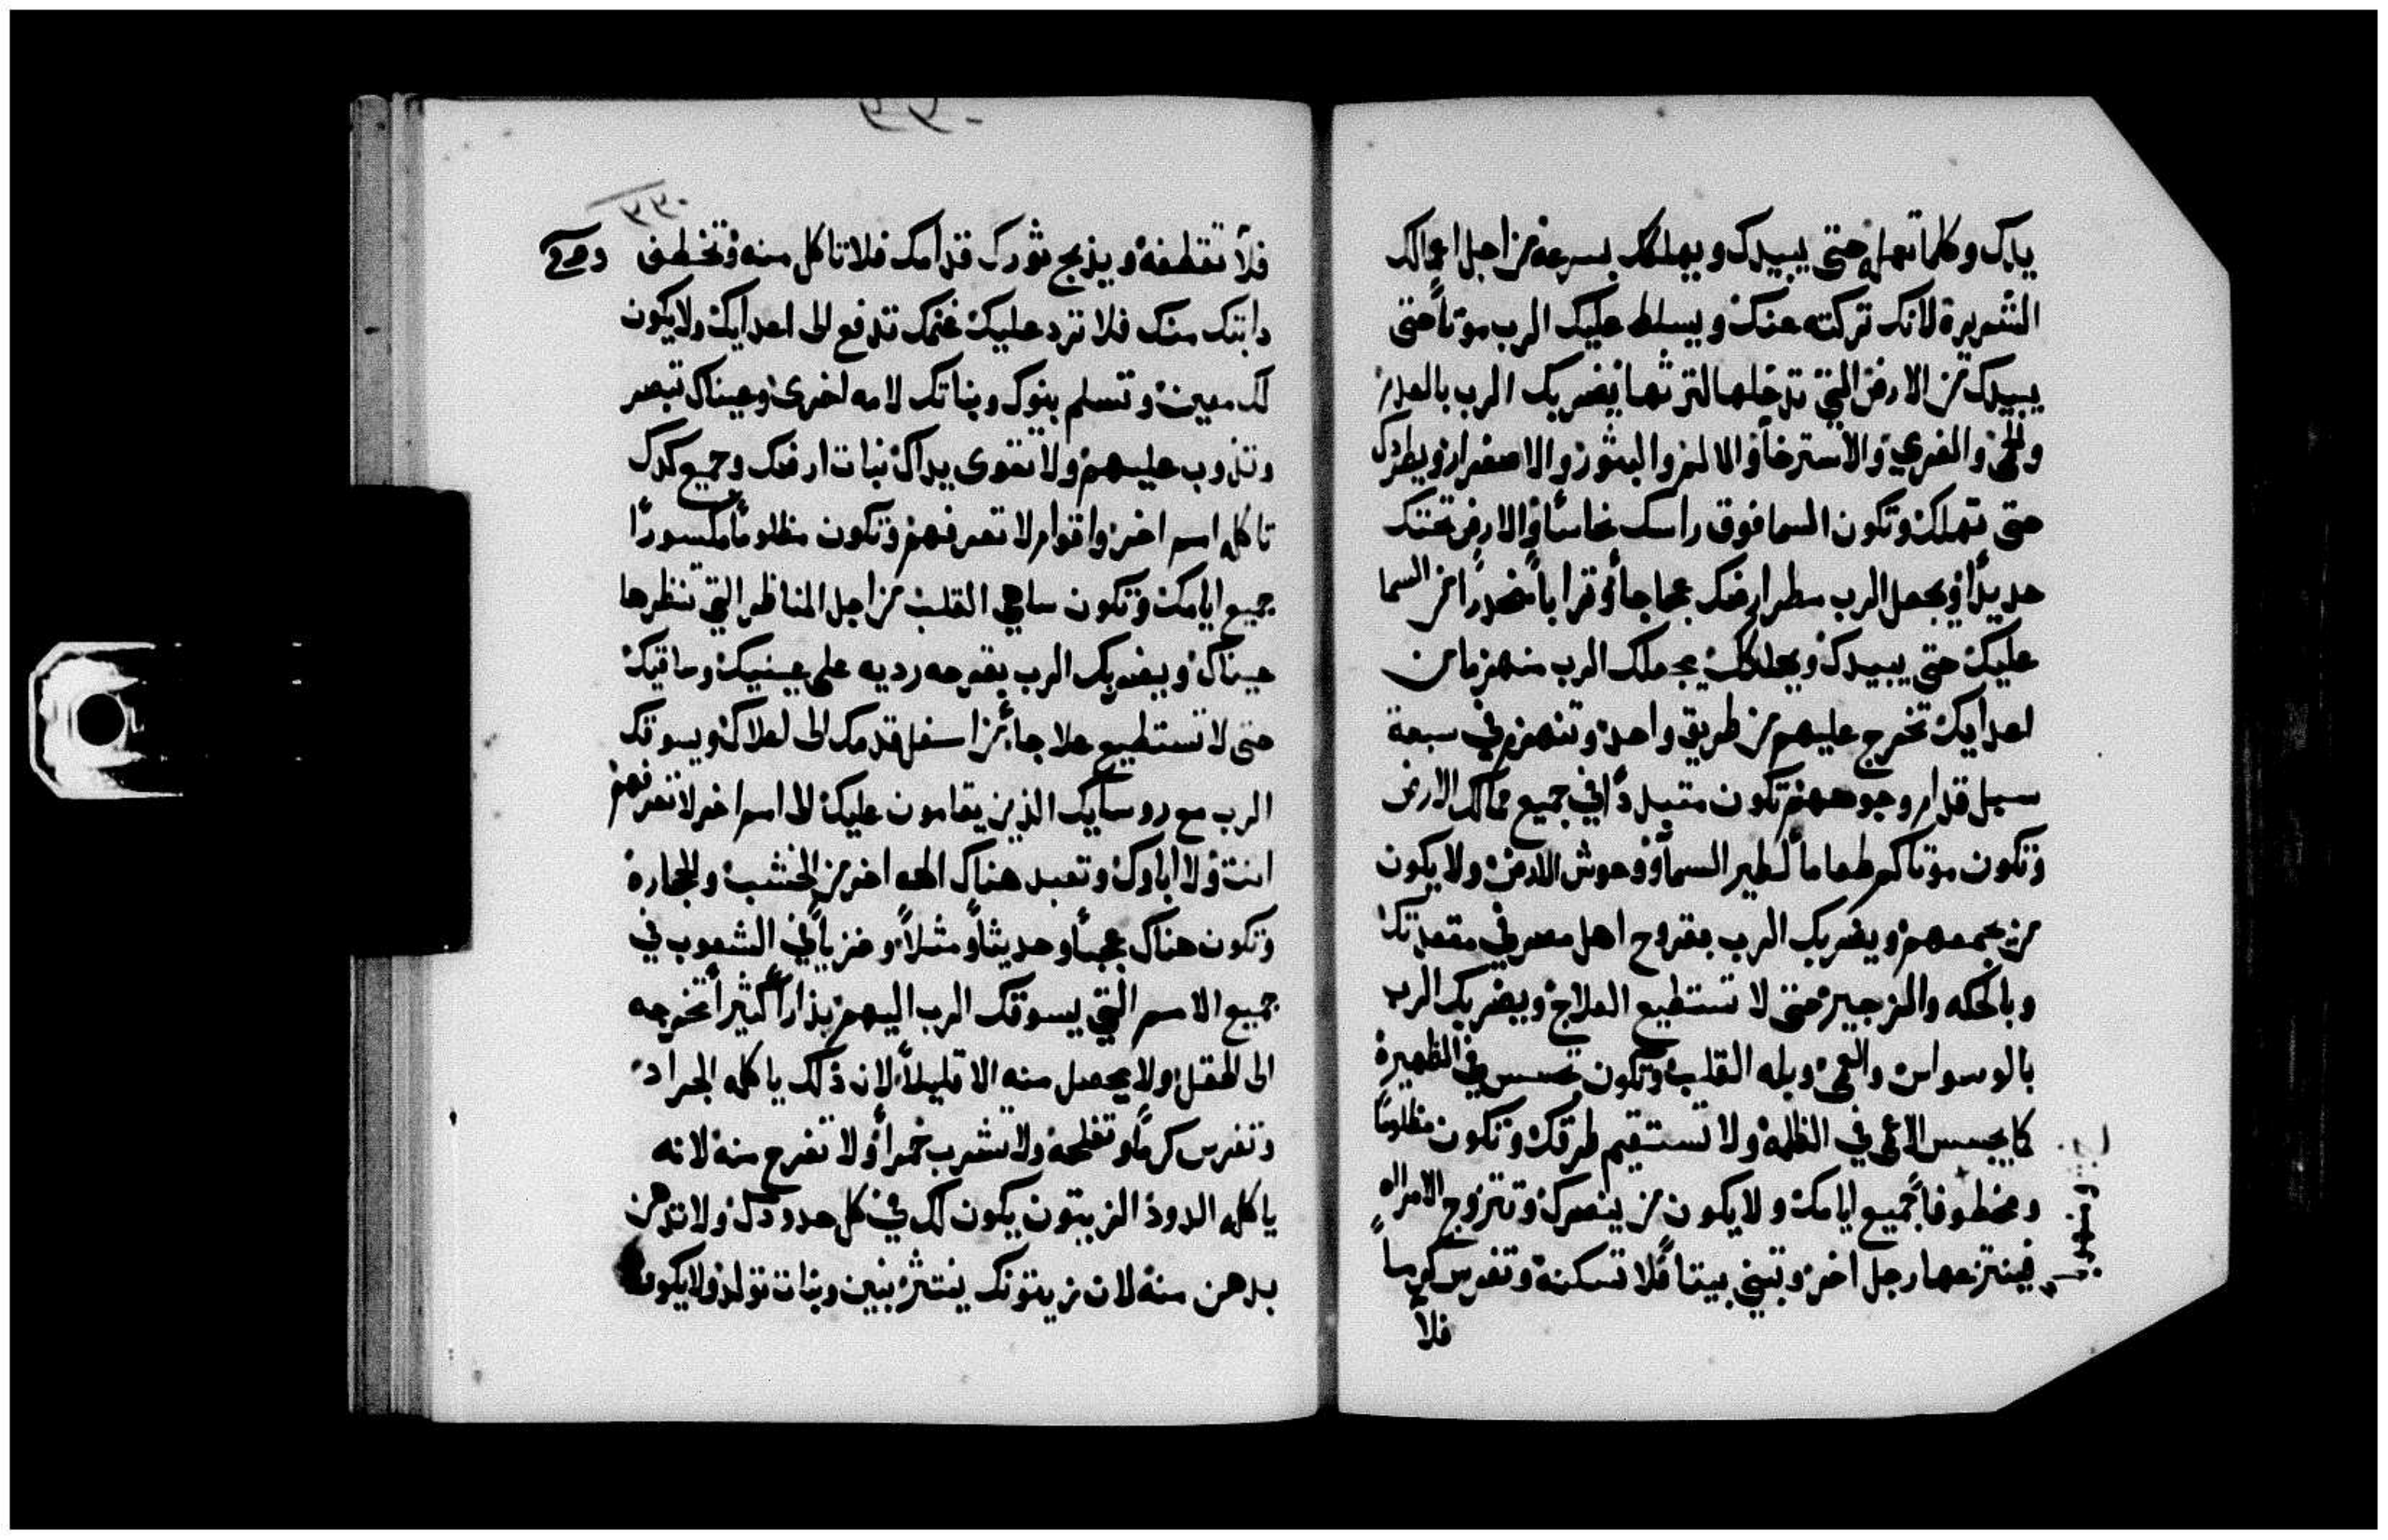 يدك وكلما تعمله حتى يبيدك ويهلكك بسرعة من اجل اعمالك
الشريرة لانك تركته عنك ويسلط عليك الرب موتاً حتى
يبيدك من الارض التي تدخلها لترثها يضربك الرب
والحمى والاسترخا والالم والبثور والاصفرار ويطردك
حتى تهلك وتكون السما فوق راسك نحاساً والارض تحتك
حديداً ويجعل الرب مطر ارضك عجاجاً وتراباً منحدراً من السما
عليك حتى يبيدك ويهلكك يجعلك الرب منهزماً من
اعدايك تخرج عليهم من طريق واحد وتنهزم في سبعة
سبل قدام وجوههم تكون متبدداً في جميع ممالك الارض
وتكون موتاكم طعاماً لطير السما ووحوش الارض ولا يكون
من يجمعهم ويضربك الرب بقروح اهل مصر في مقعدتك
وبالحكه والزجير حتى لا تستطيع العلاج ويضربك الرب
بالوسواس والعمى وبله القلب وتكون تجسس في الظهيرة
كما يجسس الاعمى في الظلمة ولا تستقيم طرقك وتكون مظلوماً
ومخطوفاً جميع ايامك ولا يكون من ينصرك وتتزوج الامراه
فينتزعها رجل اخر وتبني بيتاً فلا تسكنه وتغرس كرماً
فلا
٢٣٠
فلا تقطفه ويذبح ثورك قدامك فلا تاكل منه وتخطف
دابتك منك فلا ترد عليك غنمك تدفع الى اعدايك ولا يكون
لك معين وتسلم بنوك وبناتك لامه اخرى وعيناك تبصر
وتذوب عليهم ولا تقوى يداك نبات ارضك وجميع كدك
تاكله امم اخر واقوام لا تعرفهم وتكون مظلوماً مكسوراً
جميع ايامك وتكون ساهي القلب من اجل المناظر التي تنظرها
عيناك ويضربك الرب بقرحه رديه على عينيك وساقيك
حتى لا تستطيع علاجاً من اسفل قدمك الى اعلاك ويسوقك
الرب مع روسايك الذين يقامون عليك الى امم اخر لا تعرفهم
انت ولا اباوك وتعبد هناك الهه اخر من الخشب والحجاره
وتكون هناك عجباً وحديثاً ومثلاً وخزياً في الشعوب في
جميع الامم التي يسوقك الرب اليهم بذاراً كثيراً تخرجه
الى الحقل ولا يحصل منه الا قليلاً لان ذلك ياكله الجراد
وتغرس كرماً وتفلحه ولا تشرب خمراً ولا تفرح منه لانه
ياكله الدود الزيتون يكون لك في كل حدودك ولا تدهن
بدهن منه لان زيتونك ينتثر بنين وبنات تولد ولا يكون